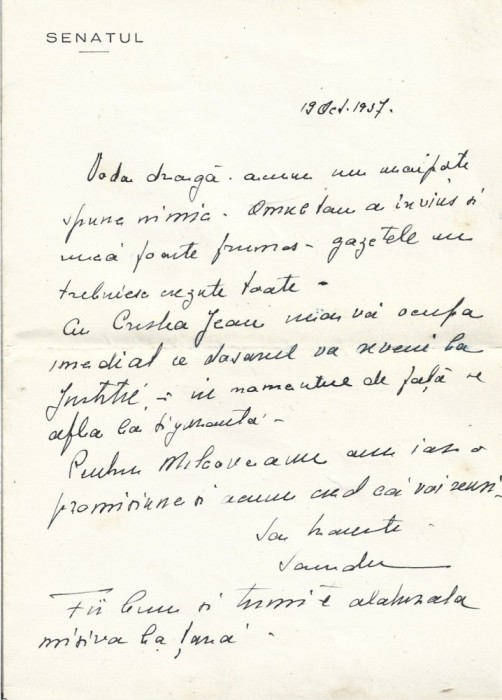 SENATUL
19 Oct. 1937.
draga. acum nu mai poate
spune nimic. Omul tau a invins si
inca foarte frumos - gazetele nu
trebuiesc crezute toate -
Cu Cristea Jean ma voi ocupa
imediat ce dosarul va reveni la
Justitie, - in momentul de față se
afla la Siguranta -
Pentru Milcoveanu am iar o
promisiune si acum cred că voi reusi.
Sandu
Fii bun si trimite alaturata
misiva la Țară.